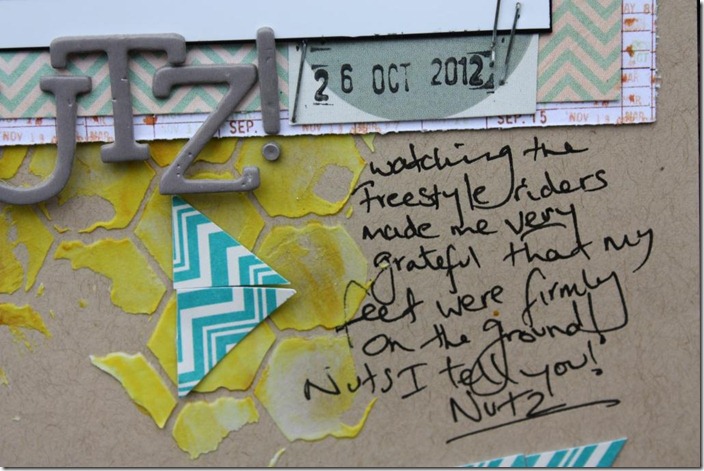 UTZ!
26 OCT 2012
SEP. 15
NOV
watching the
freestyle riders
made me very
grateful that my
feet were firmly
on the ground!
Nuts I tell you!
Nutz